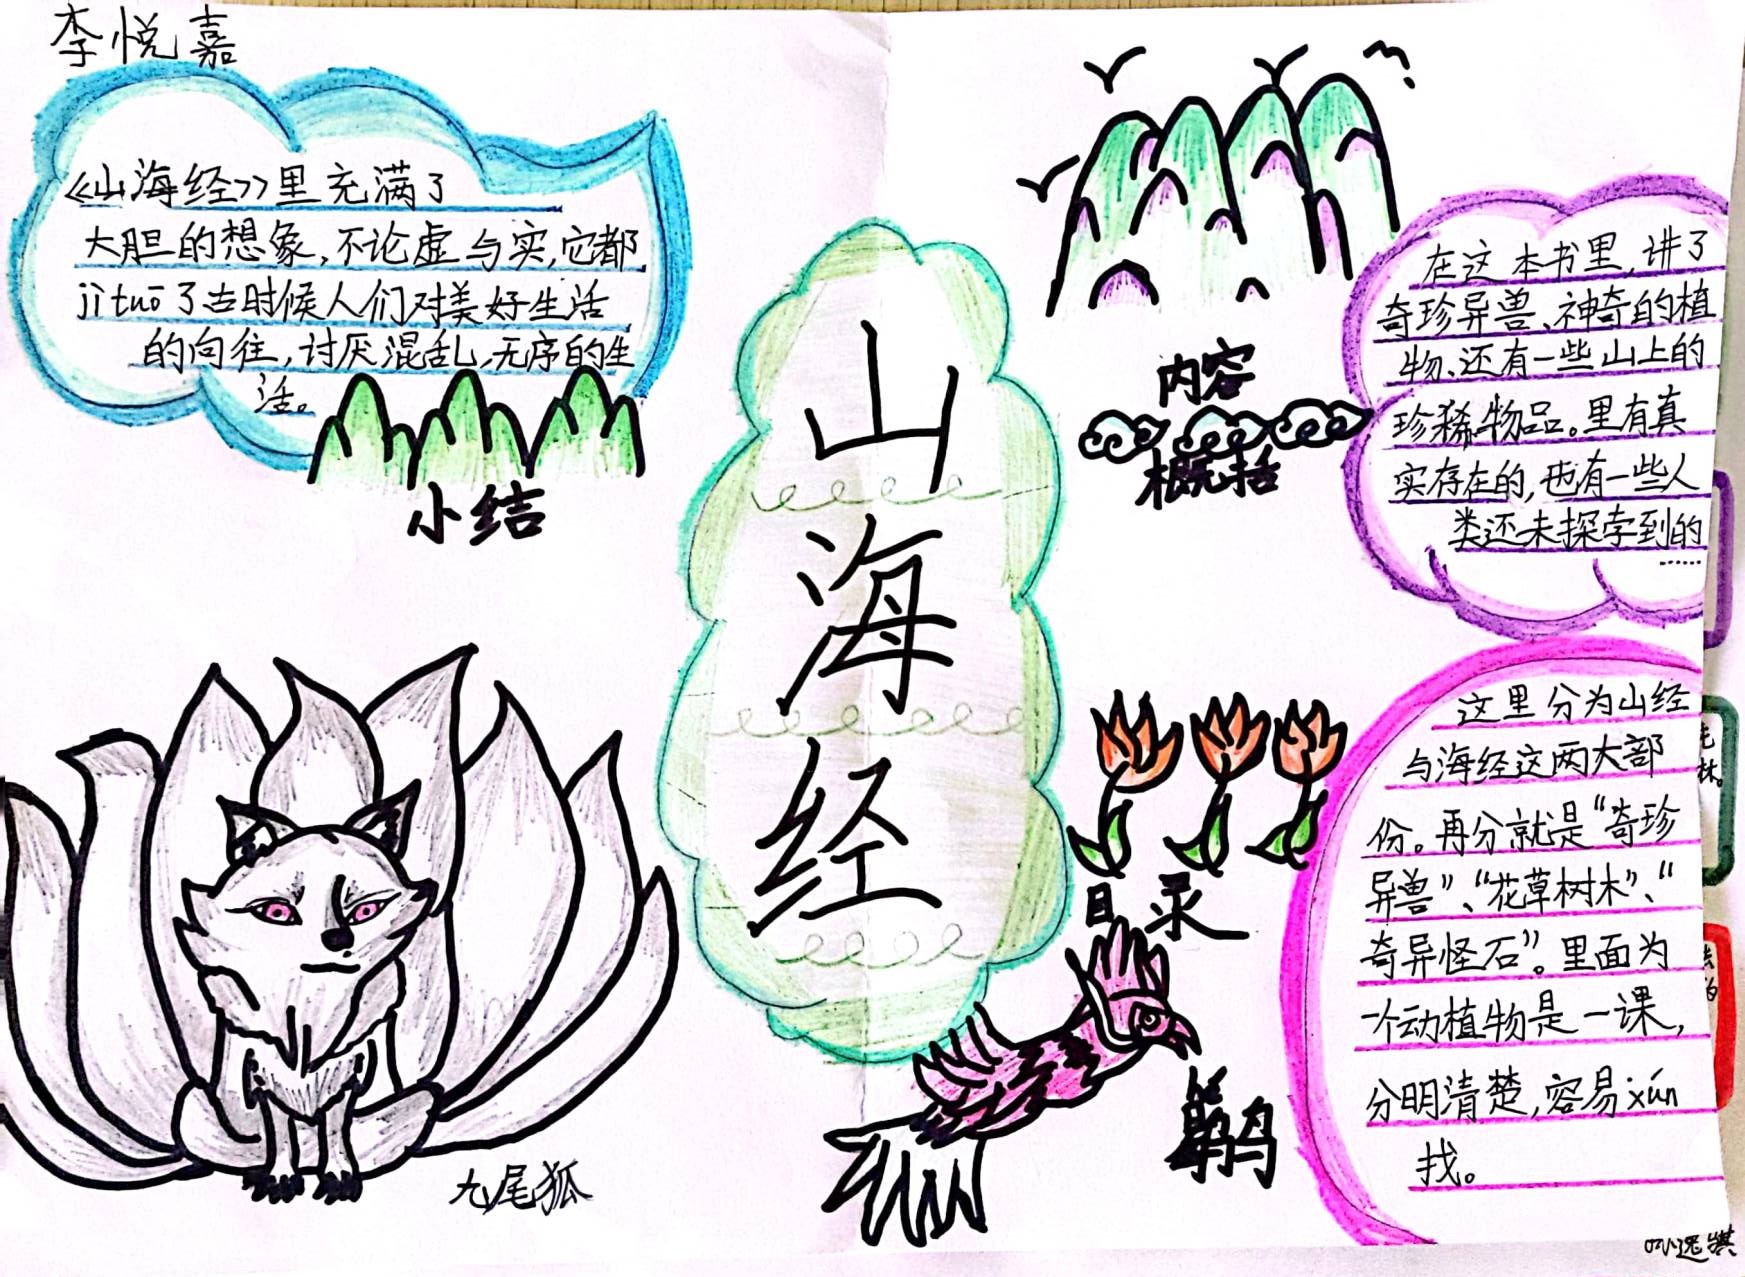 李悦嘉
《山海经》里充满了
大胆的想象，不论虚与实，它都
jì tuō了古时候人们对美好生活
的向往，讨厌混乱、无序的生
活。
小结
九尾狐
山
海
经
内容
概括
在这本书里，讲了
奇珍异兽、神奇的植
物、还有一些山上的
珍稀物品。里有真
实存在的，也有一些人
类还未探索到的
……
目录
这里分为山经
与海经这两大部
份。再分就是“奇珍
异兽”、“花草树木”、“
奇异怪石”。里面为
一个动植物是一课，
分明清楚，容易xún
找。